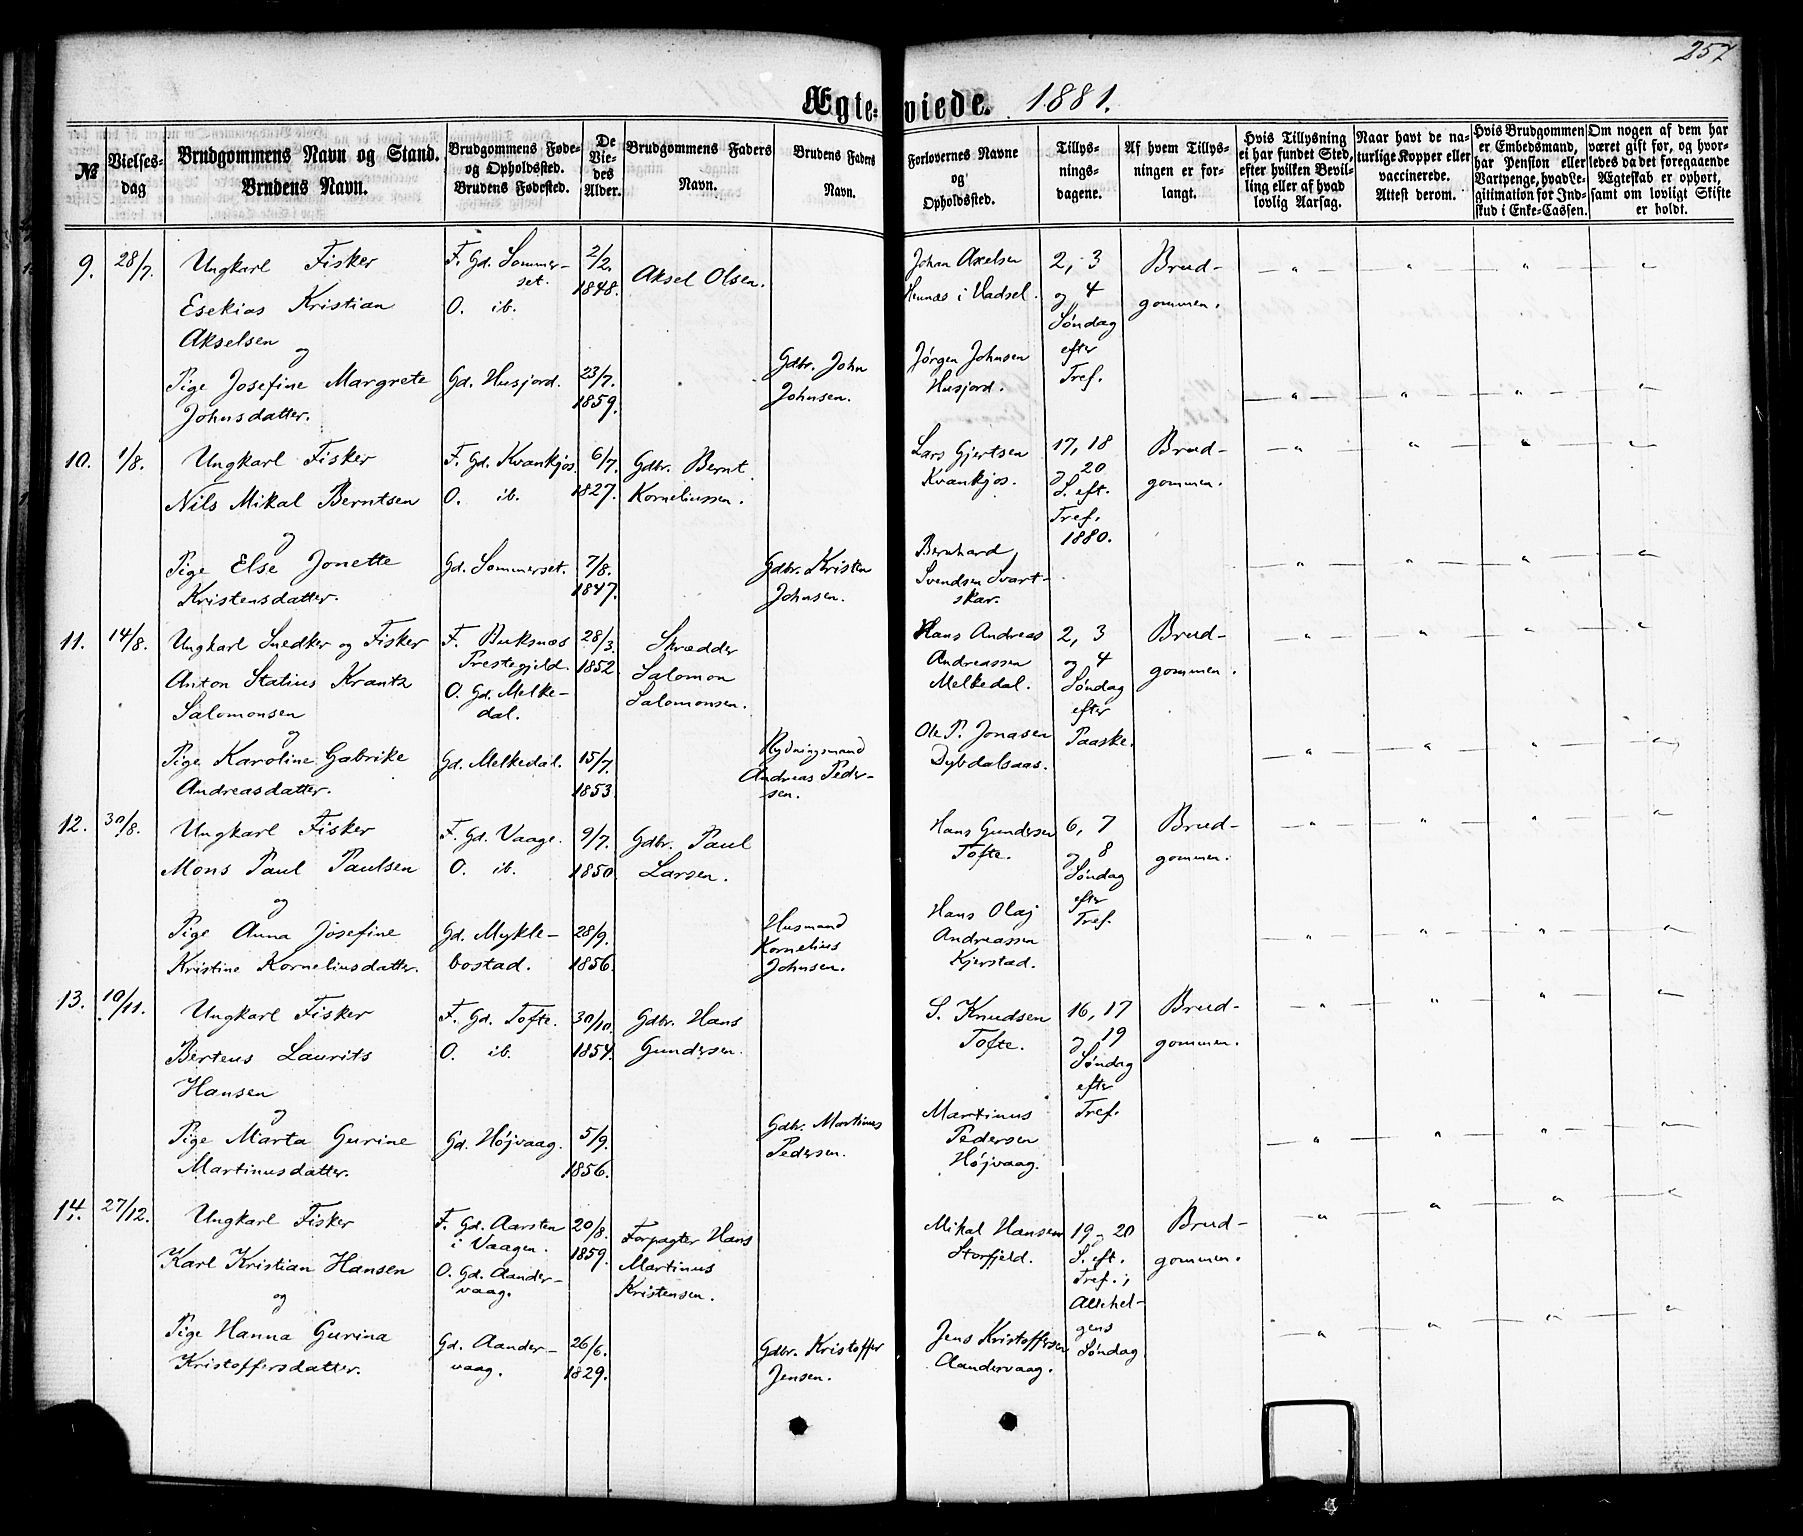 257
Ægteviede. 1881.
№ Vielsesdag Brudgommens Navn og Stand. Brudens Navn. Brudgommens Fødeog Opholdssted. Brudens Fødested. De Viedes Alder. Brudgommens Faders Navn. Brudens Faders Navn. Forlovernes Navne og Opholdssted. Tillysningsdagene. Af hvem Tillysningen er forlangt. Hvis Tillysning ei har fundet Sted, efter hvilken Bevilling eller af hvad lovlig Aarsag. Naar havt de naturlige Kopper eller vaccinerede. Attest derom. Hvis Brudgommen er Embedsmand, har Pension eller Vartpenge, hvad Legitimation for Indskud i Enke-Cassen. Om nogen af dem har været gift før, og hvorledes da det foregaaende Ægteskab er ophørt, samt om lovligt Skifte er holdt.
9. 28/7. Ungkarl Fisker
Esekias Kristian
Akselsen
og
Pige Josefine Margrete
Johnsdatter.
F. Gd. Sommerset.
O. ib.
Gd. Husjord.
2/2. 1848.
23/7. 1859.
Aksel Olsen.
Gdbr. John
Johnsen.
Johan Axelsen
Hennæs i Hadsel.
Jørgen Johnsen
Husjord.
2, 3
og 4
Søndag
efter
Tref.
Brudgommen.
10. 1/8. Ungkarl Fisker
Nils Mikal Berntsen
og
Pige Else Jonette
Kristensdatter.
F. Gd. Kvankjos.
O. ib.
Gd. Sommerset.
6/7. 1827.
7/8. 1847.
Gdbr. Bernt
Korneliussen.
Gdbr. Kristen
Johnsen.
Lars Gjertsen
Kvankjos.
Bernhard
Svendsen Svartskar.
17, 18
og 20
S. eft.
Tref.
1880.
Brudgommen.
11. 14/8. Ungkarl Snedker og Fisker
Anton Statius Krantz
Salomonsen
og
Pige Karoline Gabrike
Andreasdatter.
F. Buksnæs
Prestegjeld.
O. Gd. Melkedal.
Gd. Melkedal.
28/3. 1852.
15/7. 1853.
Skrædder
Salomon
Salomonsen.
Rydningsmand
Andreas Pedersen.
Hans Andreas
Andreassen
Melkedal.
Ole P. Jonasen
Dybdalsaas.
2, 3
og 4
Søndag
efter
Paaske.
Brudgommen.
12. 30/8. Ungkarl Fisker
Mons Paul Paulsen
og
Pige Anna Josefine
Kristine Korneliusdatter.
F. Gd. Vaage.
O. ib.
Gd. Myklebostad.
9/7. 1850.
28/9. 1856.
Gdbr. Paul
Larsen.
Husmand
Kornelius
Johnsen.
Hans Gundersen
Tofte.
Hans Olaj
Andreassen
Kjerstad.
6, 7
og 8
Søndag
efter
Tref.
Brudgommen.
13. 10/11. Ungkarl Fisker
Berteus Laurits
Hansen
og
Pige Marta Gurine
Martinusdatter.
F. Gd. Tofte.
O. ib.
Gd. Højvaag.
30/10. 1854.
5/9. 1856.
Gdbr. Hans
Gundersen.
Gdbr. Martinus
Pedersen.
S. Knudsen
Tofte.
Martinus
Pedersen
Højvaag.
16, 17
og 19
Søndag
efter
Tref.
Brudgommen.
14. 27/12. Ungkarl Fisker
Karl Kristian Hansen
og
Pige Hanna Gurina
Kristoffersdatter.
F. Gd. Aarsten
i Vaagen.
O. Gd. Aandervaag.
Gd. Aandervaag.
20/8. 1859.
26/6. 1829.
Forpagter Hans
Martinus
Kristensen.
Gdbr. Kristoffer
Jensen.
Mikal Hansen
Storfjeld.
Jens Kristoffersen
Aandervaag.
19, 20
S. eft.
Tref.;
Allehelgens
Søndag
Brudgommen.